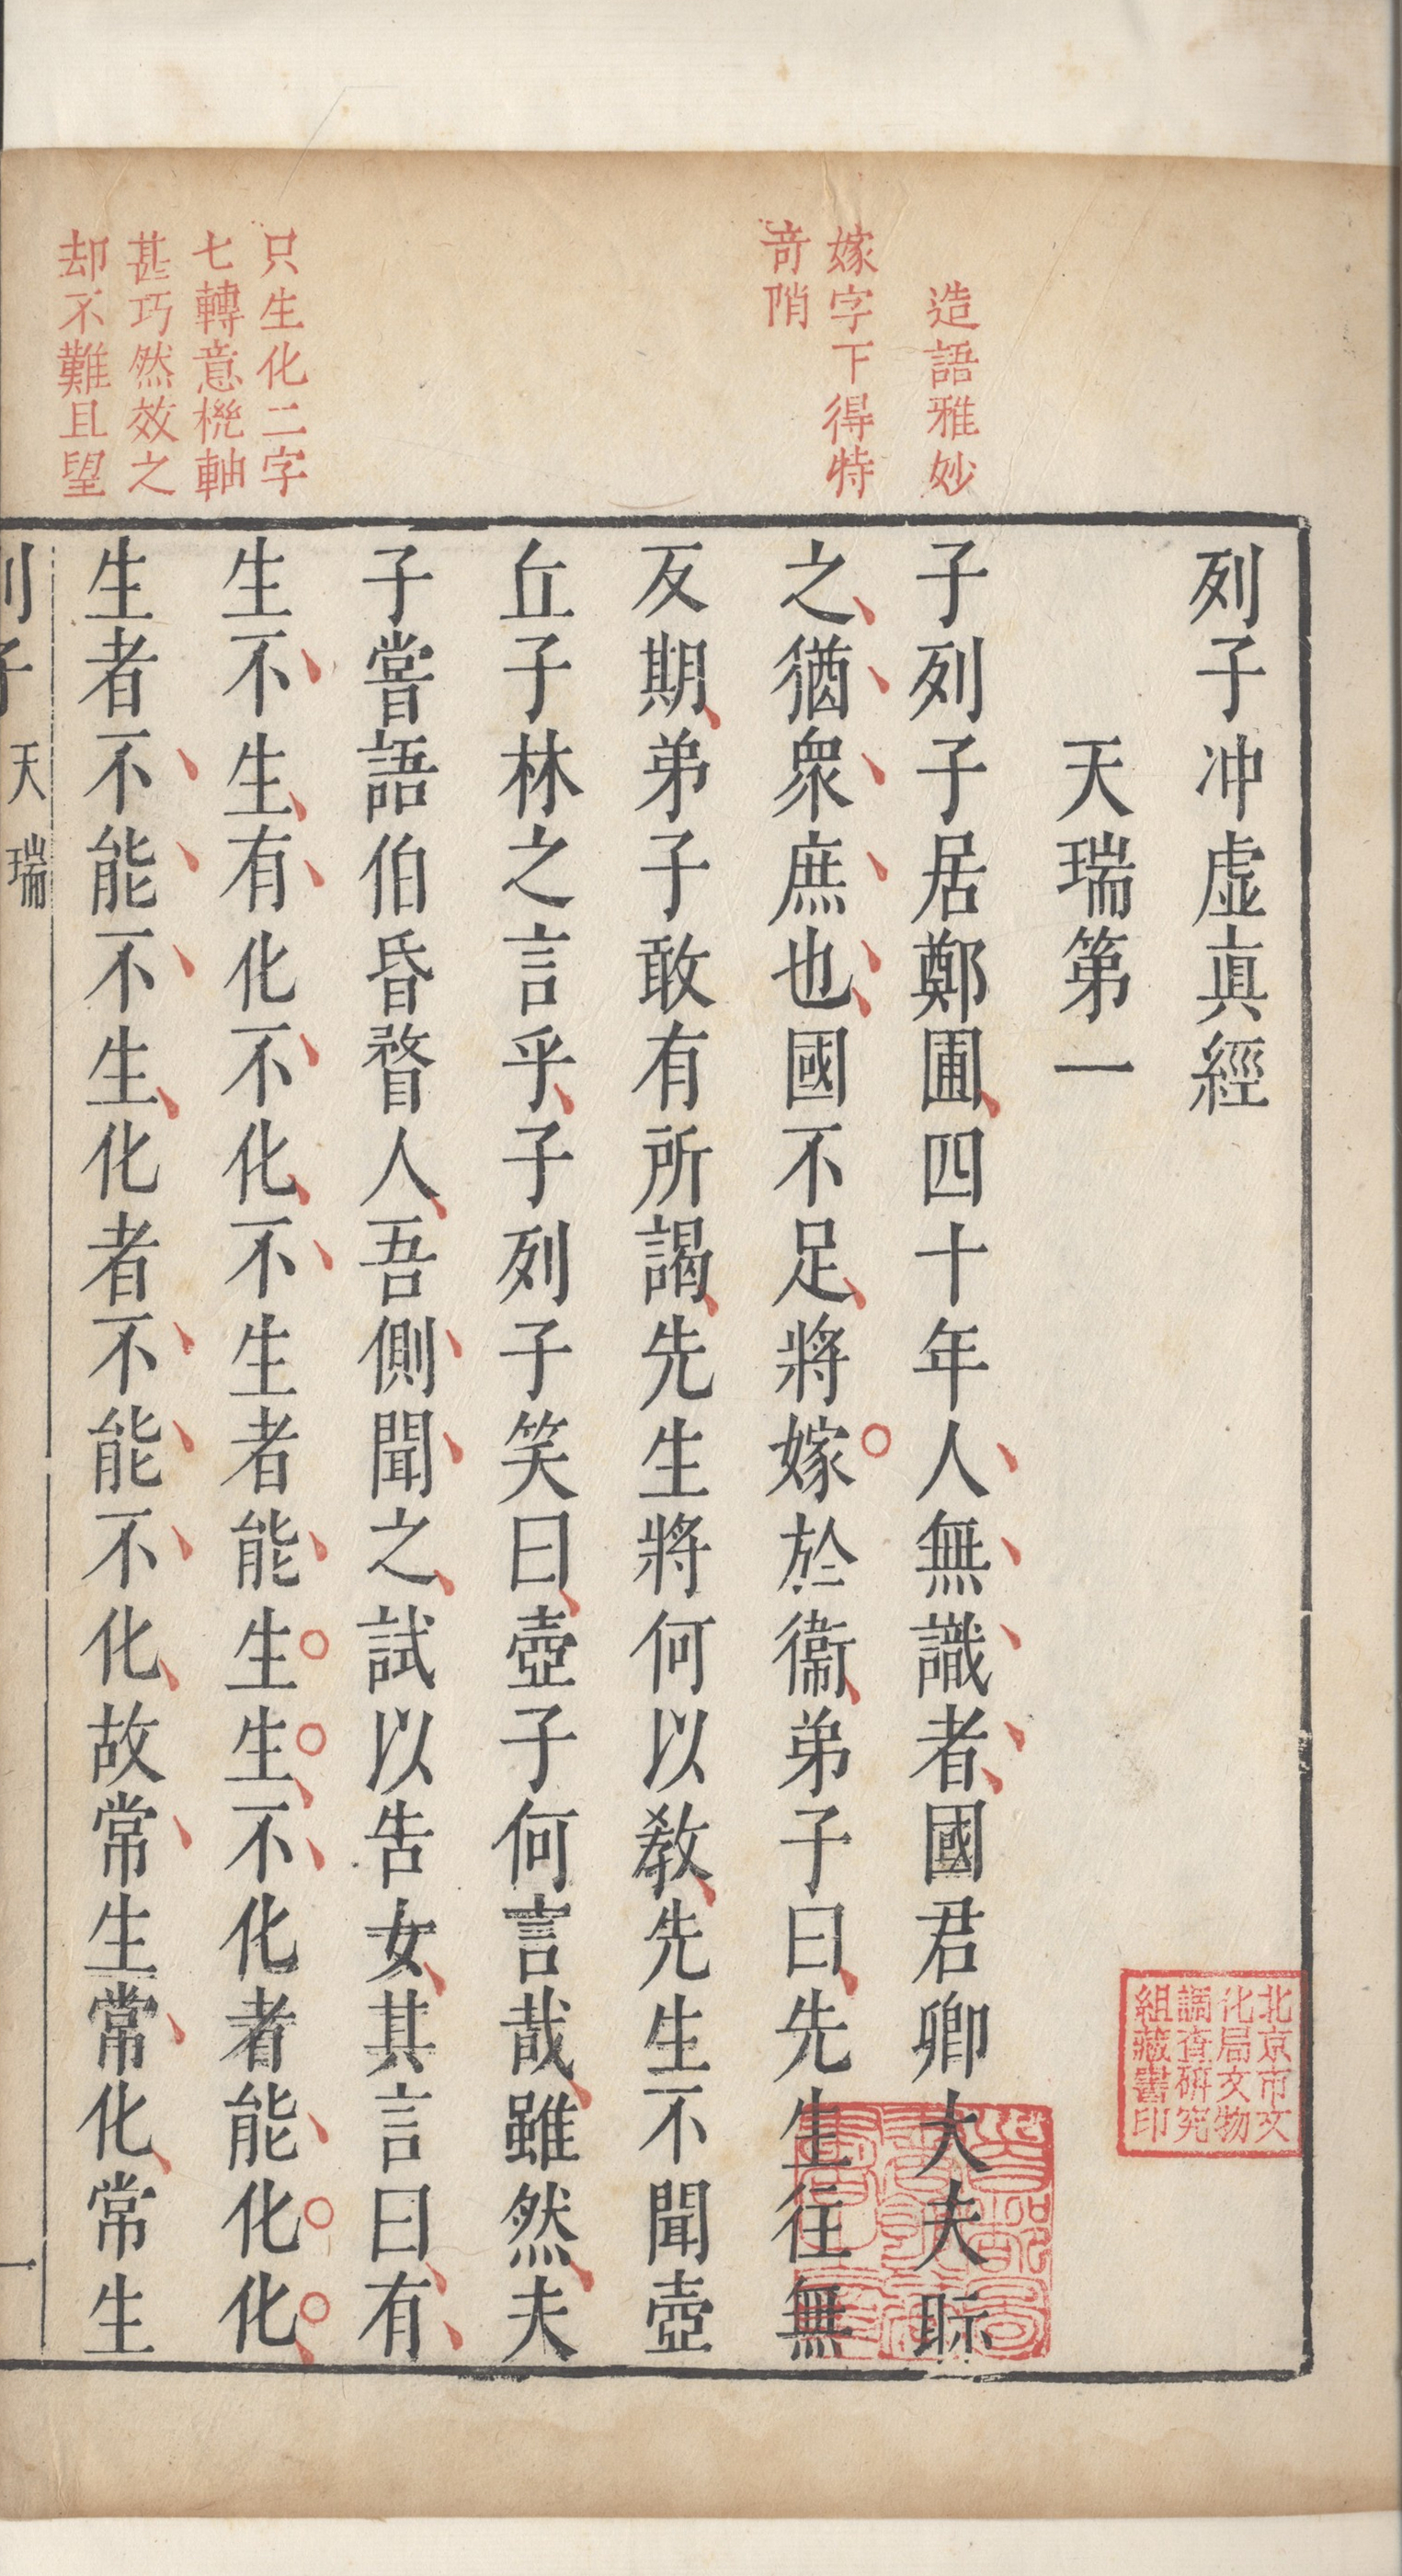 造語雅妙
嫁字下得特
奇階
只生化二字
七轉意機軸
甚巧然效之
却不難且望
列子冲虛真經
天瑞第一
子列子居鄭圃四十年人無識者國君卿大夫眎
之猶眾庶也國不足將嫁於衞弟子曰先生往無
反期弟子敢有所謁先生將何以教先生不聞壺
丘子林之言乎子列子笑曰壺子何言哉雖然夫
子嘗語伯昏瞀人吾側聞之試以告女其言曰有
生不生有化不化不生者能生生不化者能化化
生者不能不生化者不能不化故常生常化常生
列子 天瑞 一
北京市文
化局文物
調查研究
組藏書印